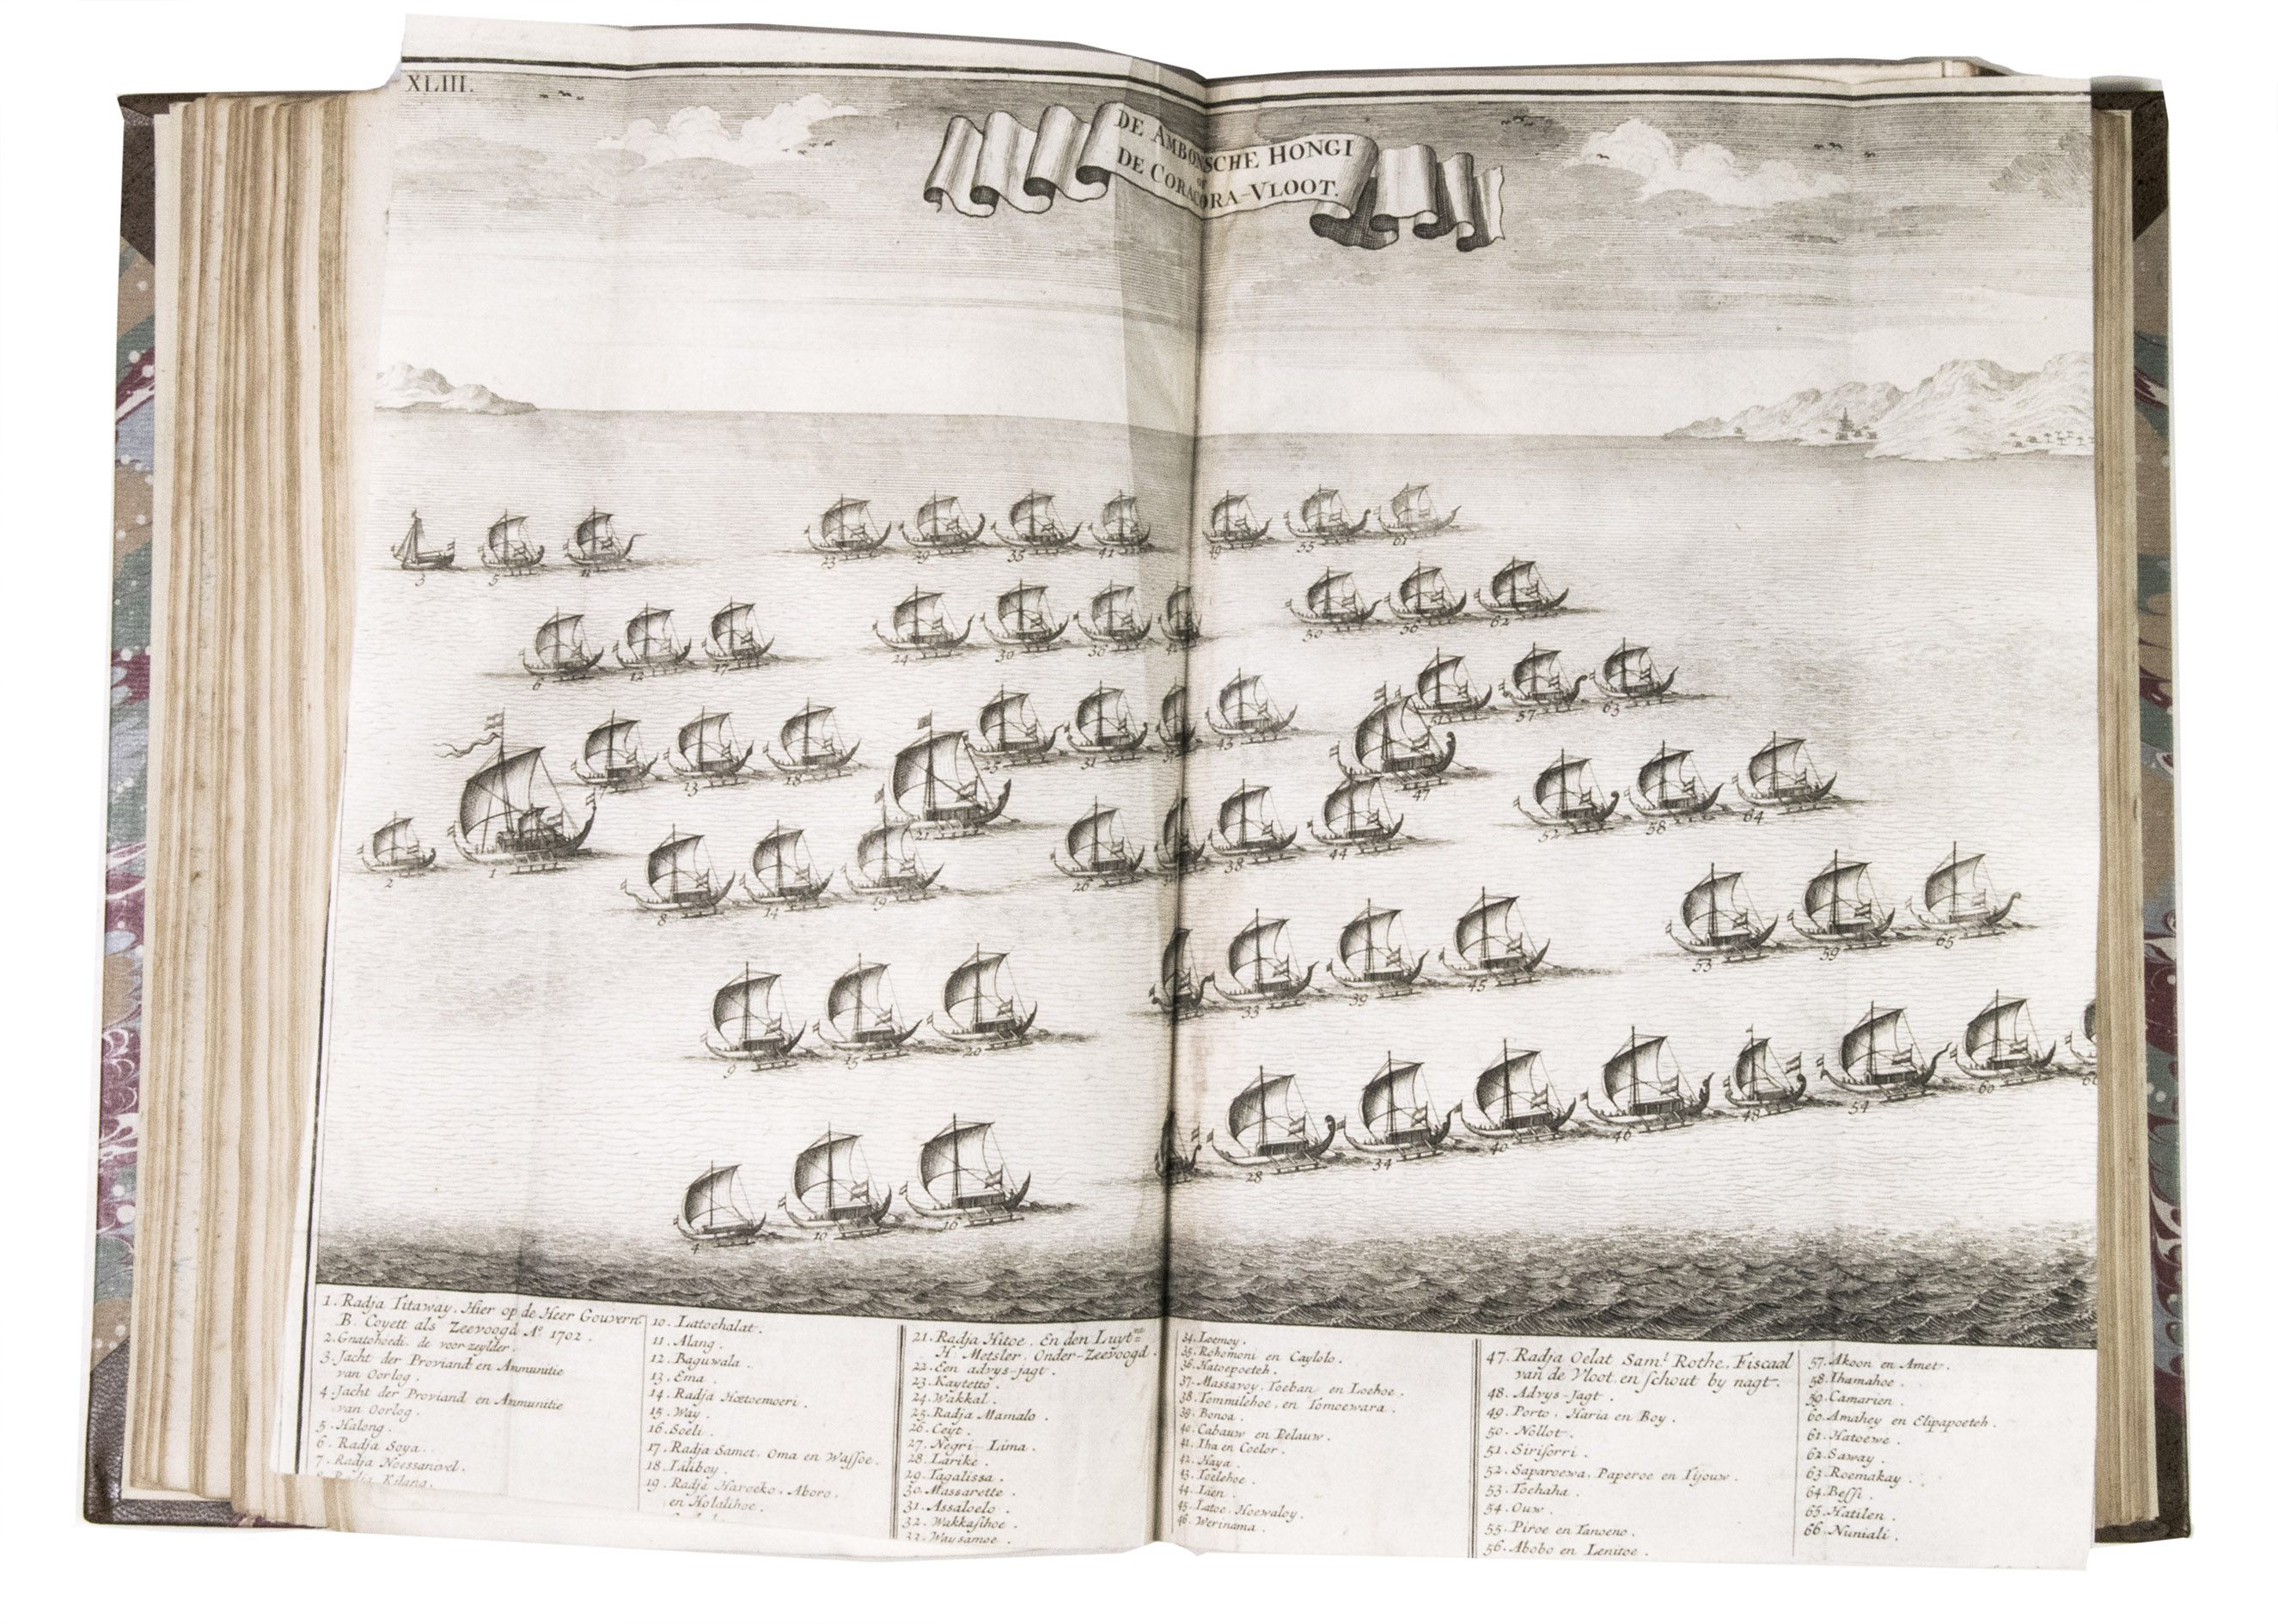 XLIII.
DE AMBONSCHE HONGI
OF
DE CORACORA-VLOOT.
3 5 11 23 29 35 41 49 55 61
6 12 17 24 30 36 42 50 56 62
7 13 18 25 31 37 43 51 57 63
2 1 21 47
8 14 19 26 38 44 52 58 64
9 15 20 33 39 45 53 59 65
4 10 16 28 34 40 46 48 54 60 66
1. Radja Titaway. Hier op de Heer Gouvernr.
B. Coyett als Zeevoogd Ao. 1702.
2. Gnatohoedi. de voorzeylder.
3. Jacht der Proviand en Ammunitie
van Oorlog.
4. Jacht der Proviand en Ammunitie
van Oorlog.
5. Halong.
6. Radja Soya.
7. Radja Noessanivel.
8. Radja Kilang.
10. Latoehalat.
11. Alang.
12. Baguwala.
13. Ema.
14. Radja Hoetoemoeri.
15. Way.
16. Soeli.
17. Radja Samet. Oma en Wassoe.
18. Liliboy.
19. Radja Haroeko. Aboro.
en Holalihoe.
21. Radja Hitoe. En den Luytnt
Hr. Metsler. Onder-Zeevoogd.
22. Een advys-jagt.
23. Kaytetto.
24. Wakkal.
25. Radja Mamalo.
26. Ceyt.
27. Negri-Lima.
28. Larike.
29. Tagalissa.
30. Massarette.
31. Assaloelo.
32. Wakkasihoe.
33. Waysamoe.
34. Loemoy.
35. Rohomoni en Caylolo.
36. Hatoepoeteh.
37. Massavoy. Toeban en Loehoe.
38. Tommilehoe. en Tomoewara.
39. Bonoa.
40. Cabauw en Pelauw.
41. Iha en Coelor.
42. Haya.
43. Toelehoe.
44. Laen.
45. Latoe. Hoewaloy.
46. Werinama.
47. Radja Oelat Saml. Rothe. Fiscaal
van de Vloot. en schout by nagt.
48. Advys-jagt.
49. Porto. Haria en Boy.
50. Nollot.
51. Sirisorri.
52. Saparoewa. Paperoe en Tijouw.
53. Toehaha.
54. Ouw.
55. Piroe en Tanoeno.
56. Abobo en Lenitoe.
57. Akoon en Amet.
58. Ihamahoe.
59. Camarien.
60. Amahey en Elipapoeteh.
61. Hatoewe.
62. Saway.
63. Roemakay.
64. Bessi.
65. Hatilen.
66. Nuniali.